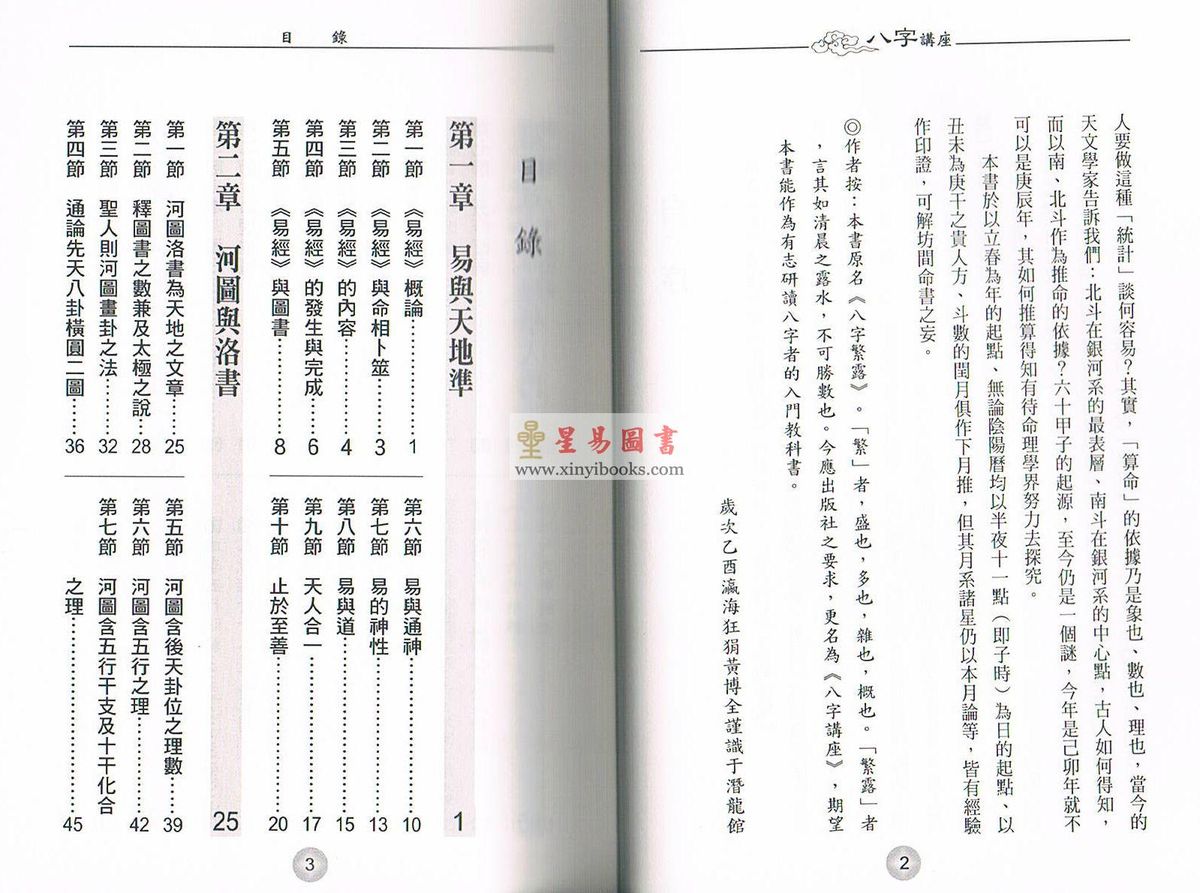 八字講座
人要做這種「統計」談何容易?其實,「算命」的依據乃是象也、數也、理也,當今的
天文學家告訴我們:北斗在銀河系的最表層、南斗在銀河系的中心點,古人如何得知,
而以南、北斗作為推命的依據?六十甲子的起源,至今仍是一個謎,今年是己卯年就不
可以是庚辰年,其如何推算得知有待命理學界努力去探究。
本書於以立春為年的起點、無論陰陽曆均以半夜十一點(即子時)為日的起點、以
丑未為庚干之貴人方、斗數的閏月俱作下月推,但其月系諸星仍以本月論等,皆有經驗
作印證,可解坊間命書之妄。
◎作者按:本書原名《八字繁露》。「繁」者,盛也,多也,雜也,概也。「繁露」者
,言其如清晨之露水,不可勝數也。今應出版社之要求,更名為《八字講座》,期望
本書能作為有志研讀八字者的入門教科書。
歲次乙酉瀛海狂狷黃博全謹識于潛龍館
2
目錄
目錄
第一章 易與天地準 1
第一節 《易經》概論……1
第二節 《易經》與命相卜筮……3
第三節 《易經》的內容……4
第四節 《易經》的發生與完成……6
第五節 《易經》與圖書……8
第六節 易與通神……10
第七節 易的神性……13
第八節 易與道……15
第九節 天人合一……17
第十節 止於至善……20
第二章 河圖與洛書 25
第一節 河圖洛書為天地之文章……25
第二節 釋圖書之數兼及太極之說……28
第三節 聖人則河圖畫卦之法……32
第四節 通論先天八卦橫圓二圖……36
第五節 河圖含後天卦位之理數……39
第六節 河圖含五行之理……42
第七節 河圖含五行干支及十干化合
之理……45
3
星易圖書
www.xinyibooks.com